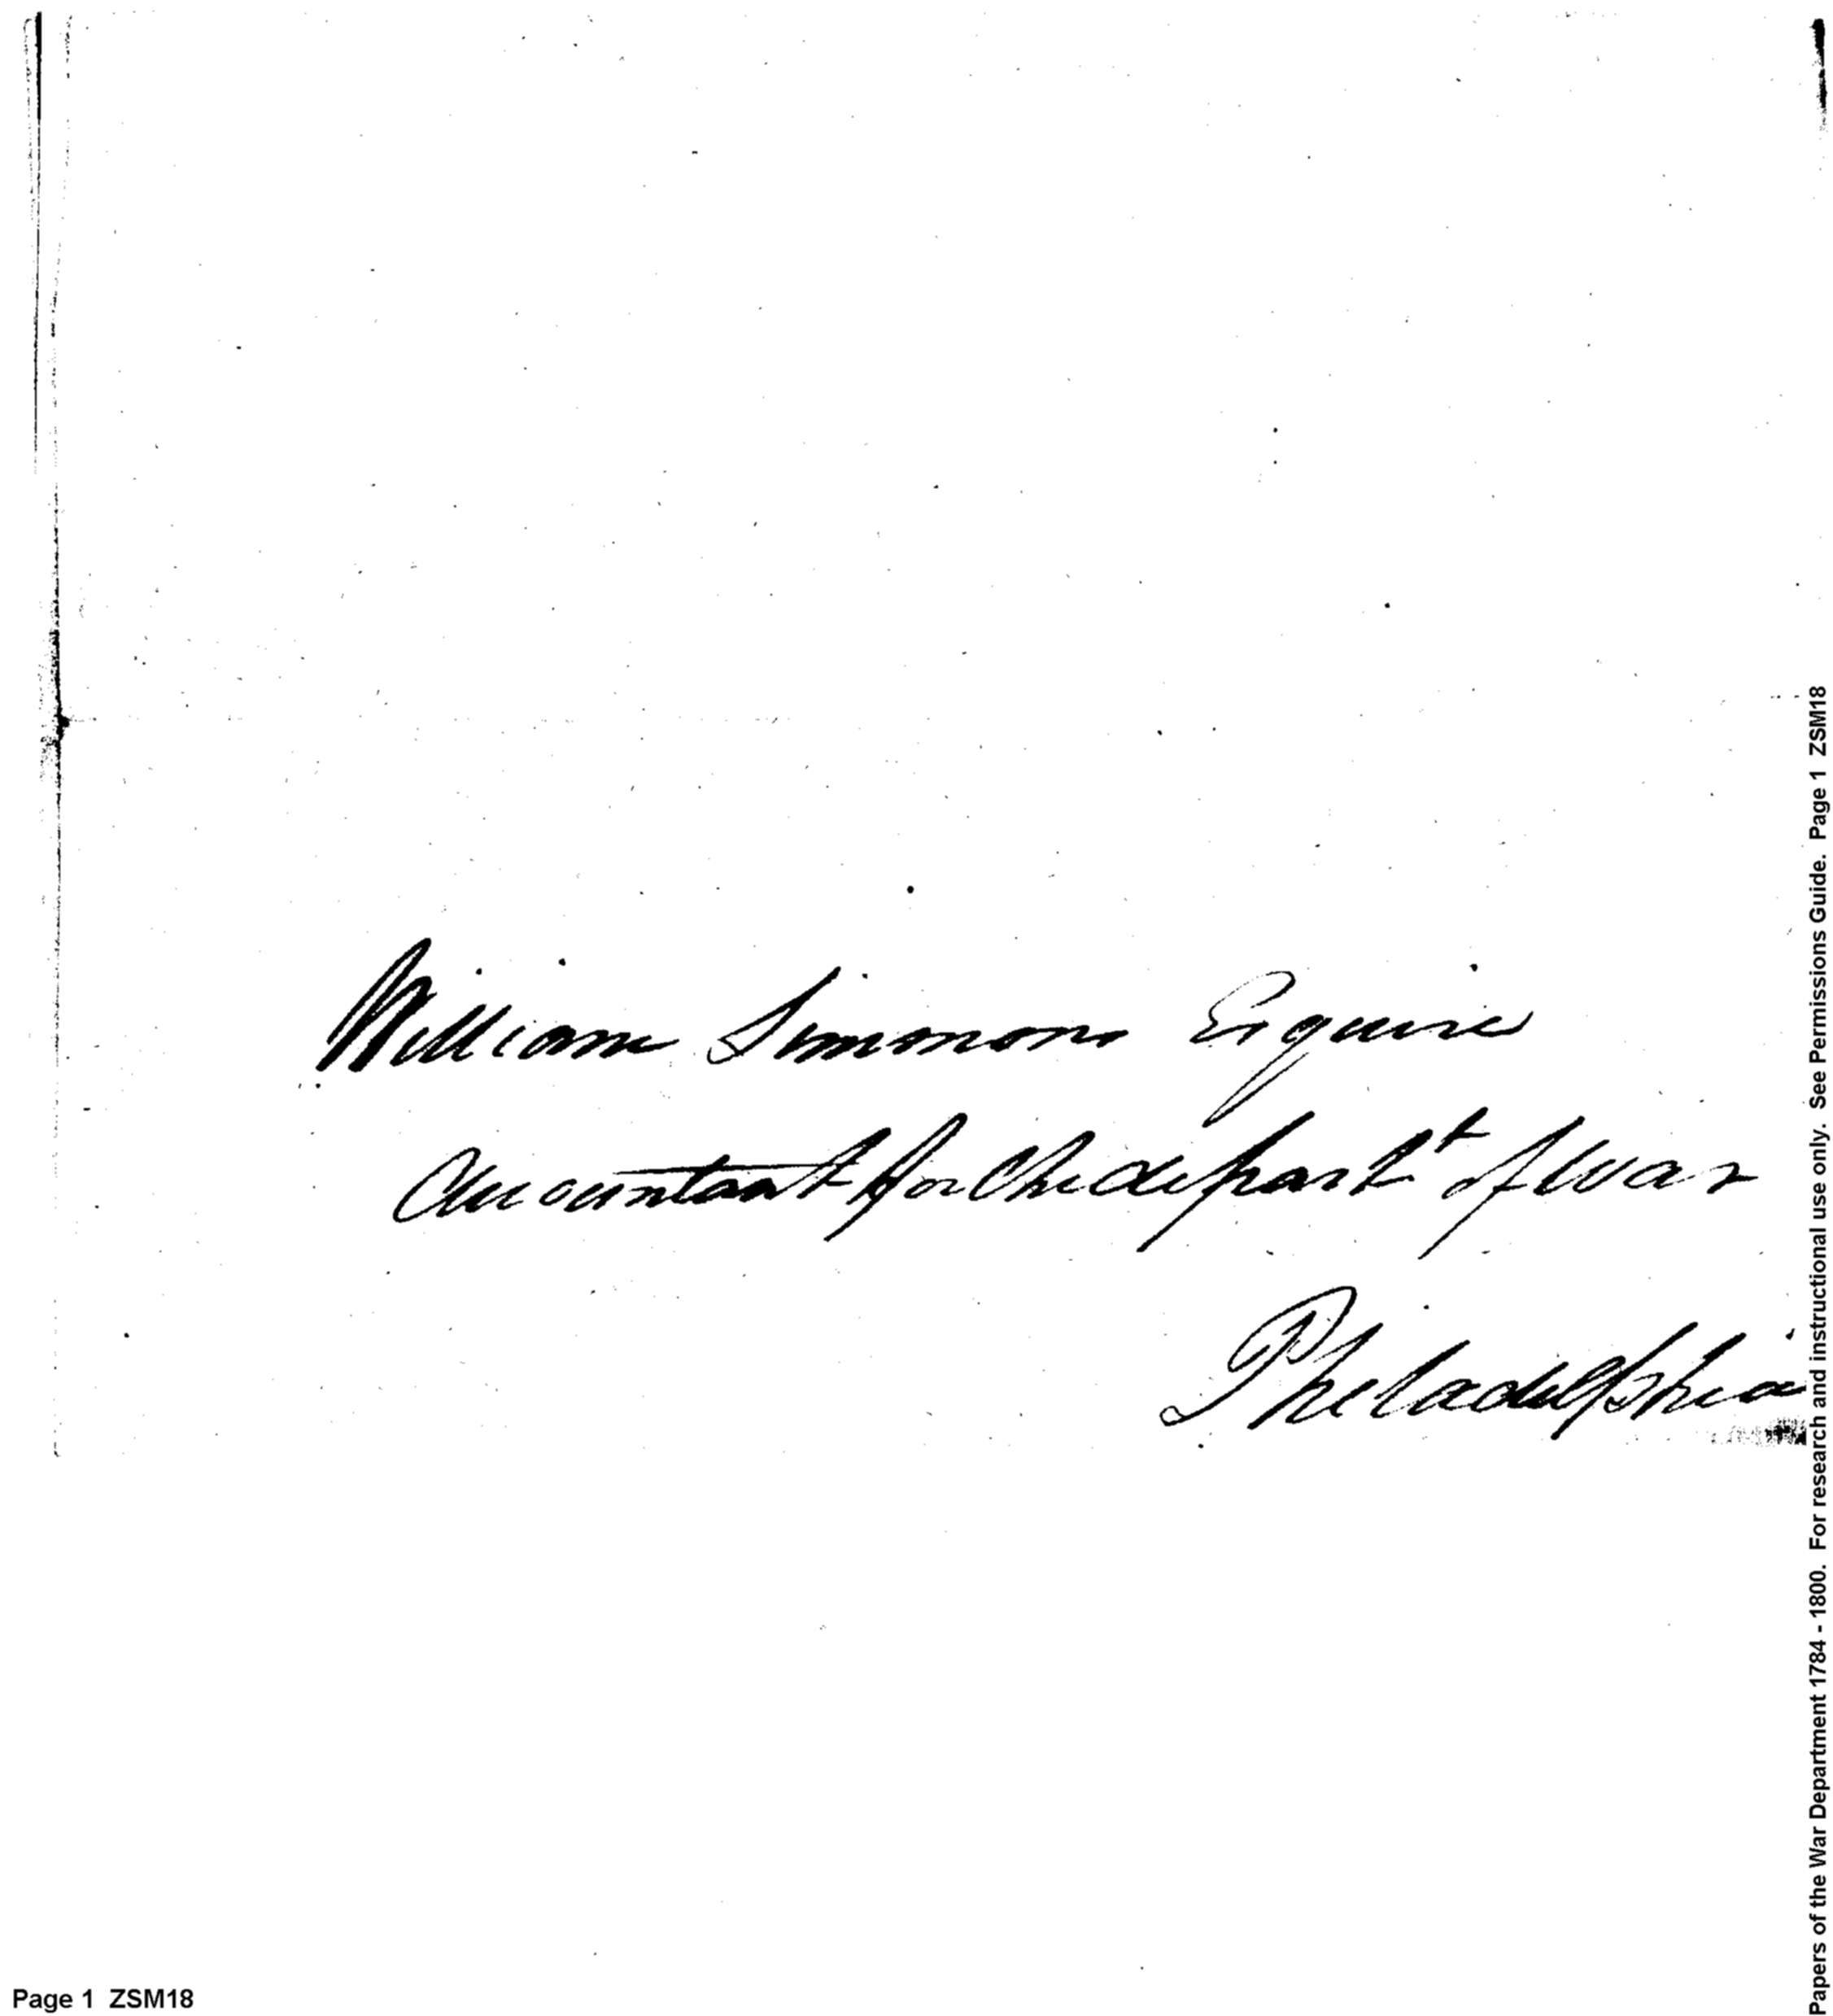 William Simmons Esquire
Accountant for the depart^t of War
Philadelphia
Page 1 ZSM18
Papers of the War Department 1784 - 1800. For research and instructional use only. See Permissions Guide. Page 1 ZSM18